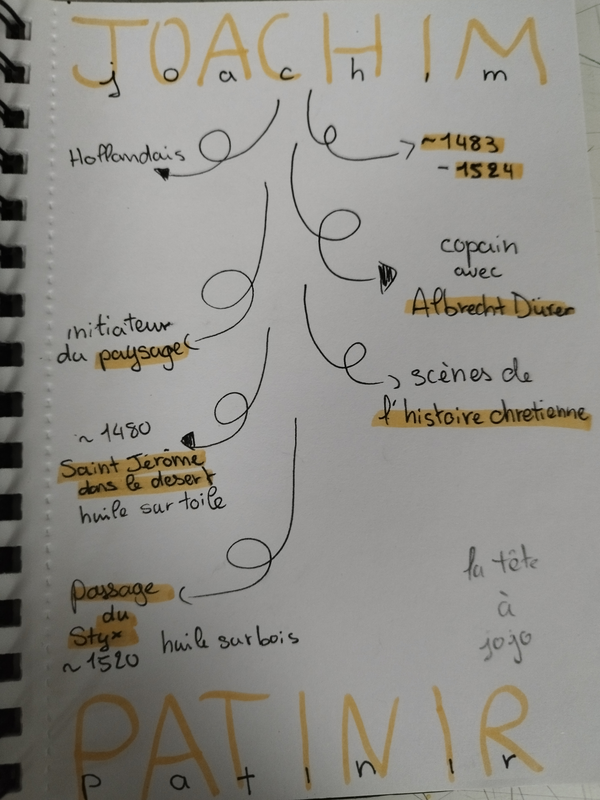 JOACHIM
joachim
Hollandais
~1483
- 1524
copain
avec
Albrecht Dürer
initiateur
du paysage
scènes de
l'histoire chretienne
~ 1480
Saint Jérôme
dans le desert
huile sur toile
Passage
du
Styx
~ 1520
huile sur bois
la tête
à
jojo
PATINIR
patinir